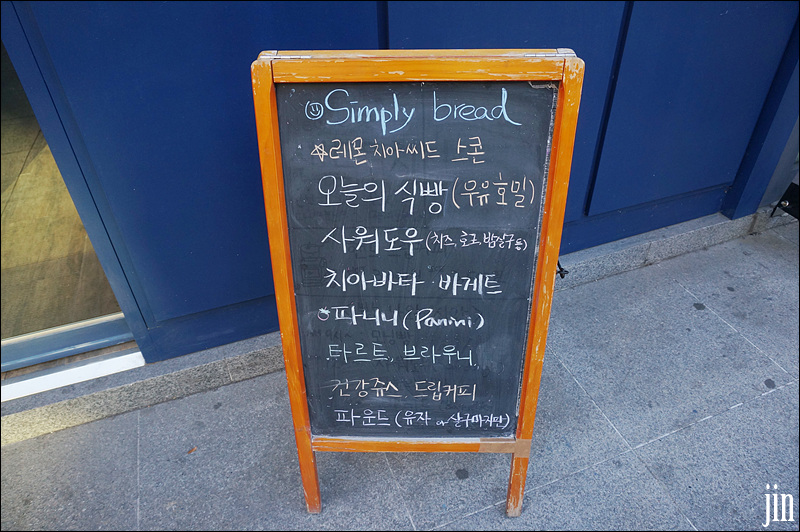 Simply bread
레몬 치아씨드 스콘
오늘의 식빵 (우유 호밀)
사워도우 (치즈, 호그, 밤살구 등)
치아바타 바게트
파니니 (Panini)
타르트, 브라우니
건강쥬스 드립커피
파운드 (유자 or 살구마지판)
jin